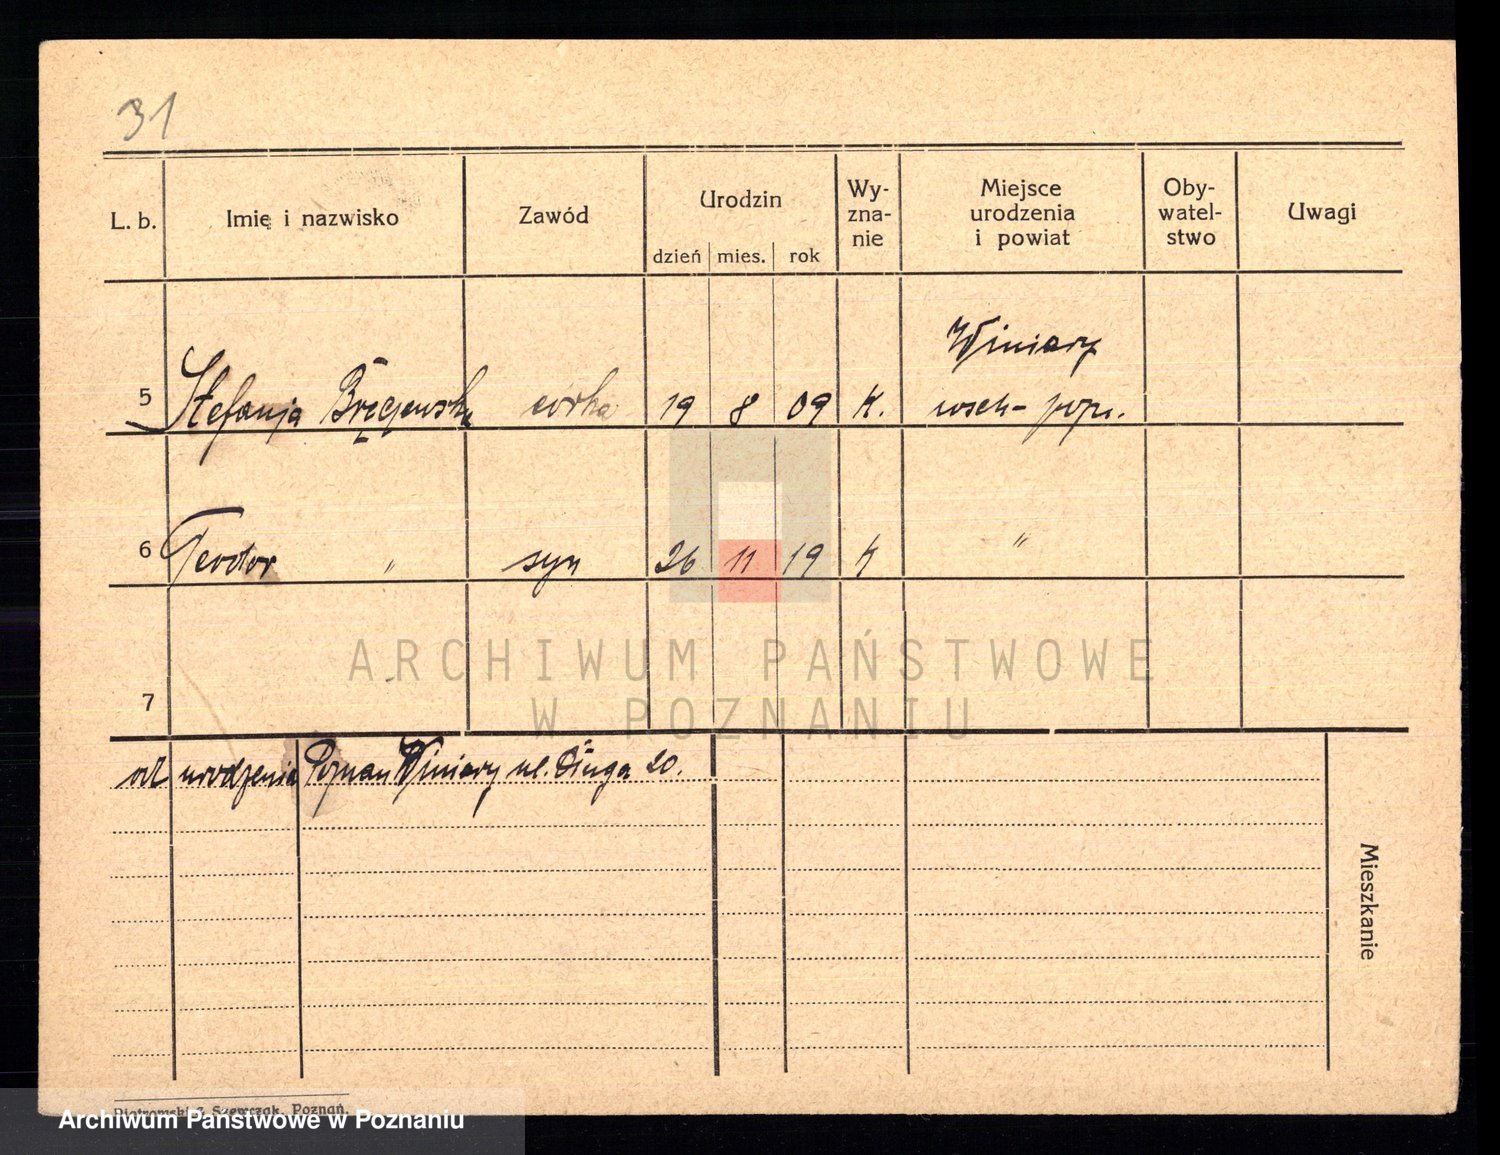 31
L. b. Imię i nazwisko Zawód Urodzin dzień mies. rok Wy-zna-nie Miejsce urodzenia i powiat Oby-watel-stwo Uwagi
Winiary
5 Stefanja córka 19 8 09 K. pozn.
6 Teodor " syn 26 11 19 K "
7
ARCHIWUM PAŃSTWOWE
W POZNANIU
od urodzenia Poznan Winiary ul. Długa 20.
Mieszkanie
Szewczak, Poznań.
Archiwum Państwowe w Poznaniu